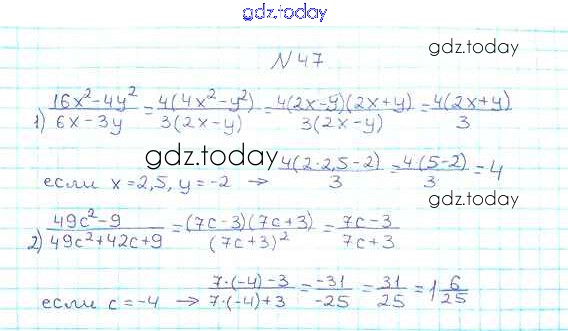 gdz.today
N 47
gdz.today
1) (16x²-4y²)/(6x-3y) = 4(4x²-y²)/3(2x-y) = 4(2x-y)(2x+y)/3(2x-y) = 4(2x+y)/3
gdz.today
если x=2,5, y=-2 → 4(2·2,5-2)/3 = 4·(5-2)/3 = 4
gdz.today
2) (49c²-9)/(49c²+42c+9) = (7c-3)(7c+3)/(7c+3)² = (7c-3)/(7c+3)
если c=-4 → (7·(-4)-3)/(7·(-4)+3) = -31/-25 = 31/25 = 1 6/25